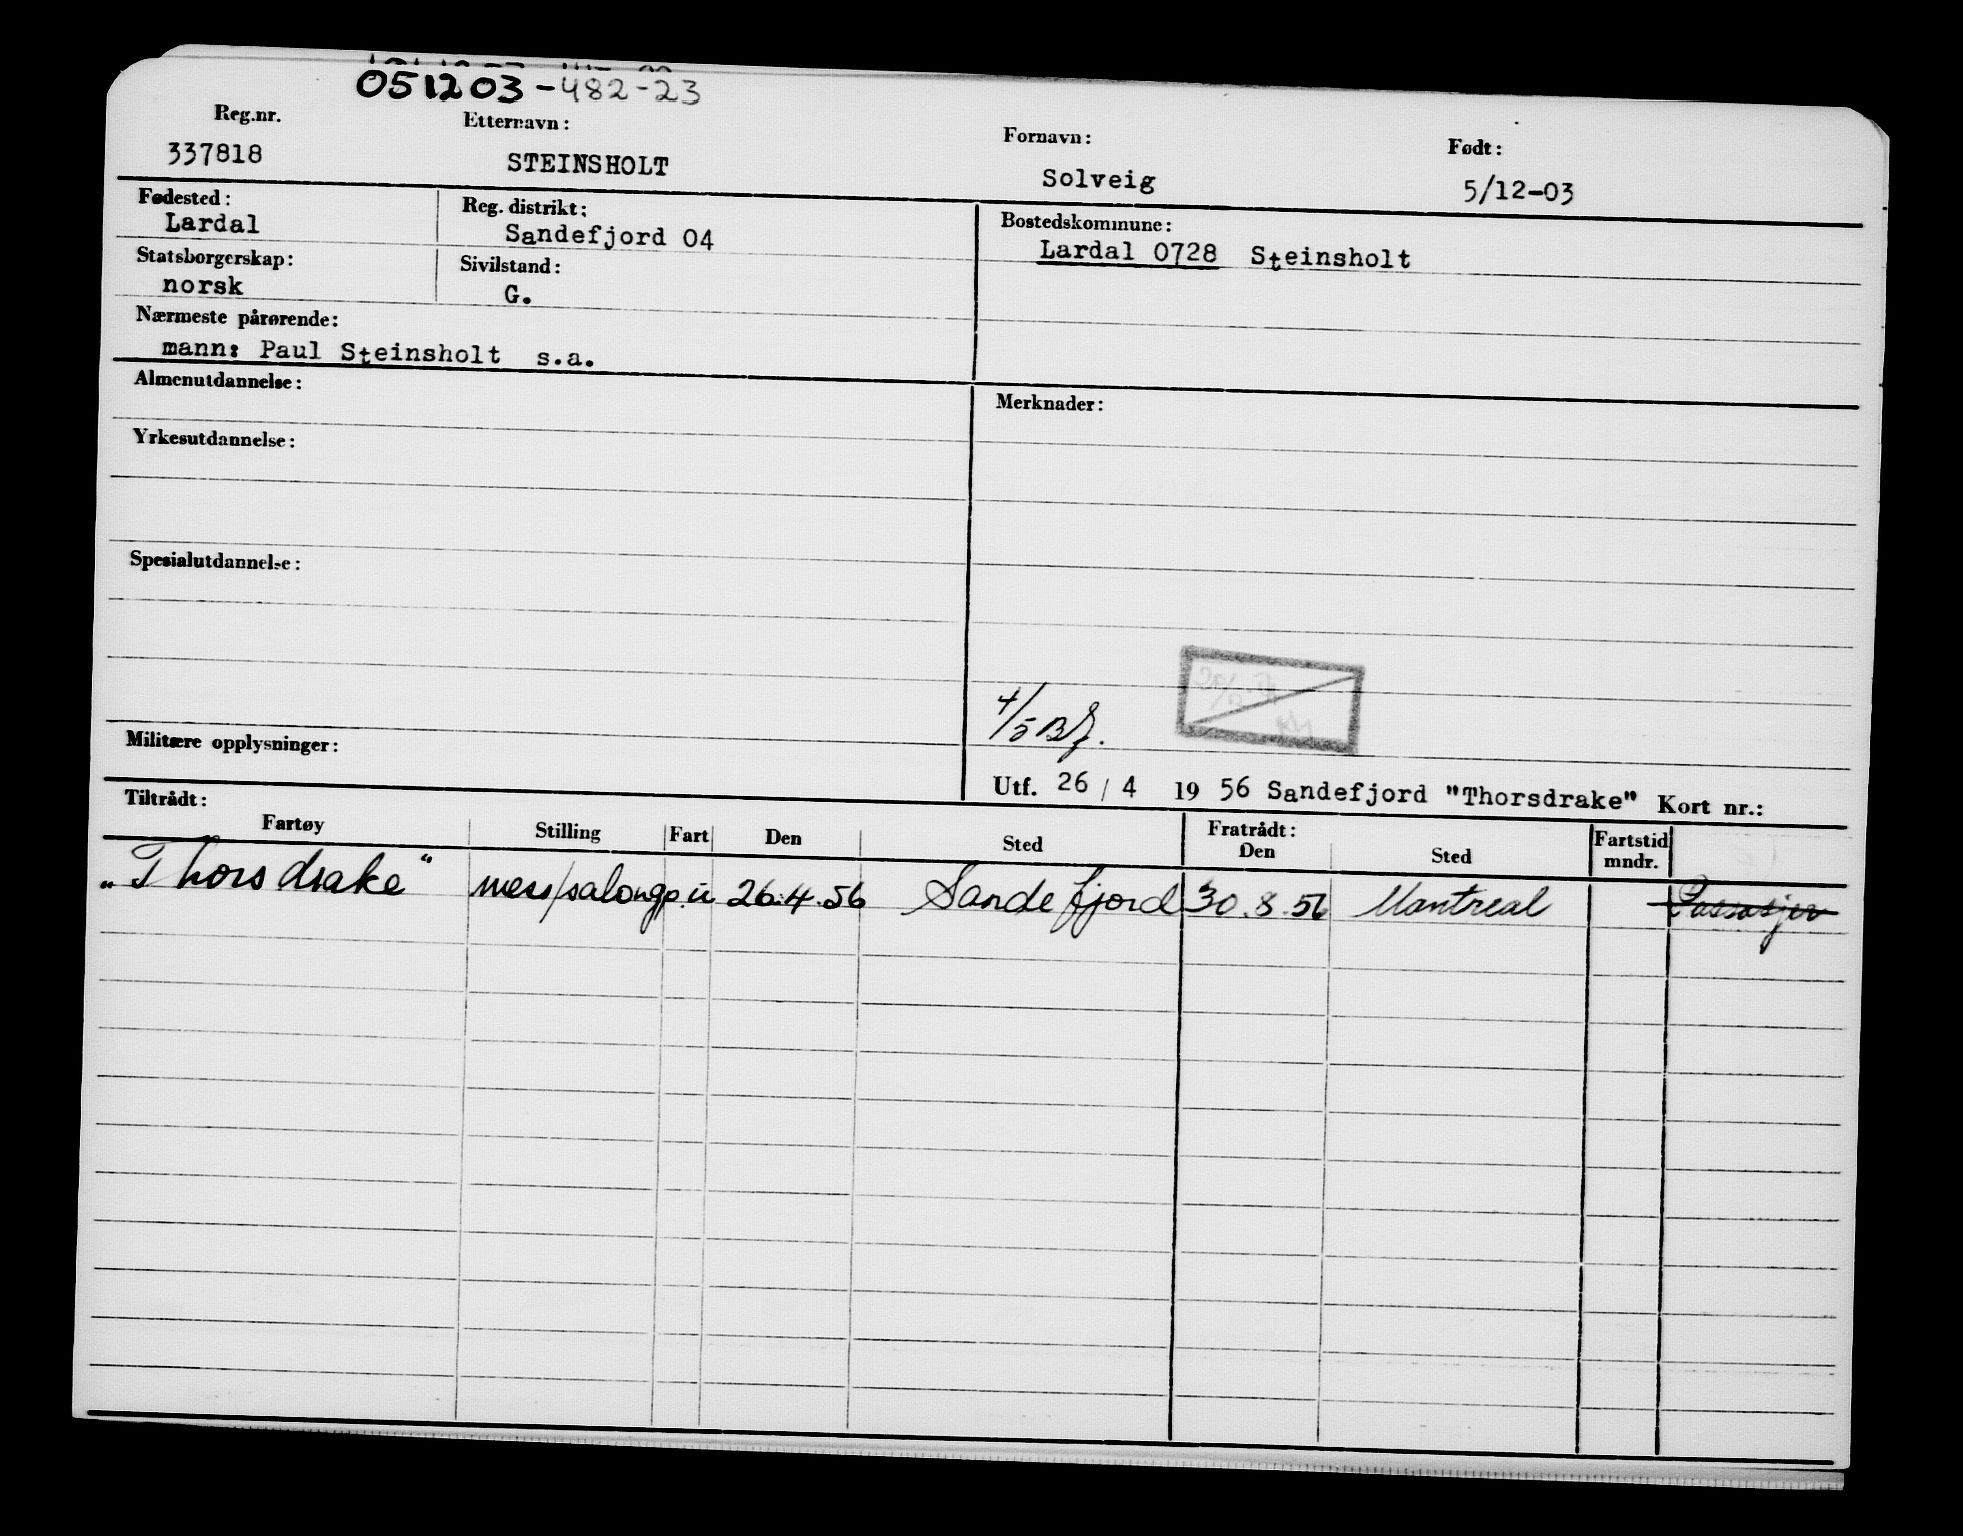 051203-482-23
Reg.nr. Etternavn: Fornavn: Født:
337818 STEINSHOLT Solveig 5/12-03
Fødested: Reg. distrikt: Bostedskommune:
Lardal Sandefjord 04 Lardal 0728 Steinsholt
Statsborgerskap: Sivilstand:
norsk G.
Nærmeste pårørende:
mann: Paul Steinsholt s.a.
Almenutdannelse: Merknader:
Yrkesutdannelse:
Spesialutdannelse:
4/5
Militære opplysninger:
Utf. 26 / 4 19 56 Sandefjord "Thorsdrake" Kort nr.:
Tiltrådt: Fratrådt:
Fartøy Stilling Fart Den Sted Den Sted Fartstid mndr.
"Thorsdrake" mess/salongp. u 26.4.56 Sandefjord 30.8.56 Montreal Passasjer